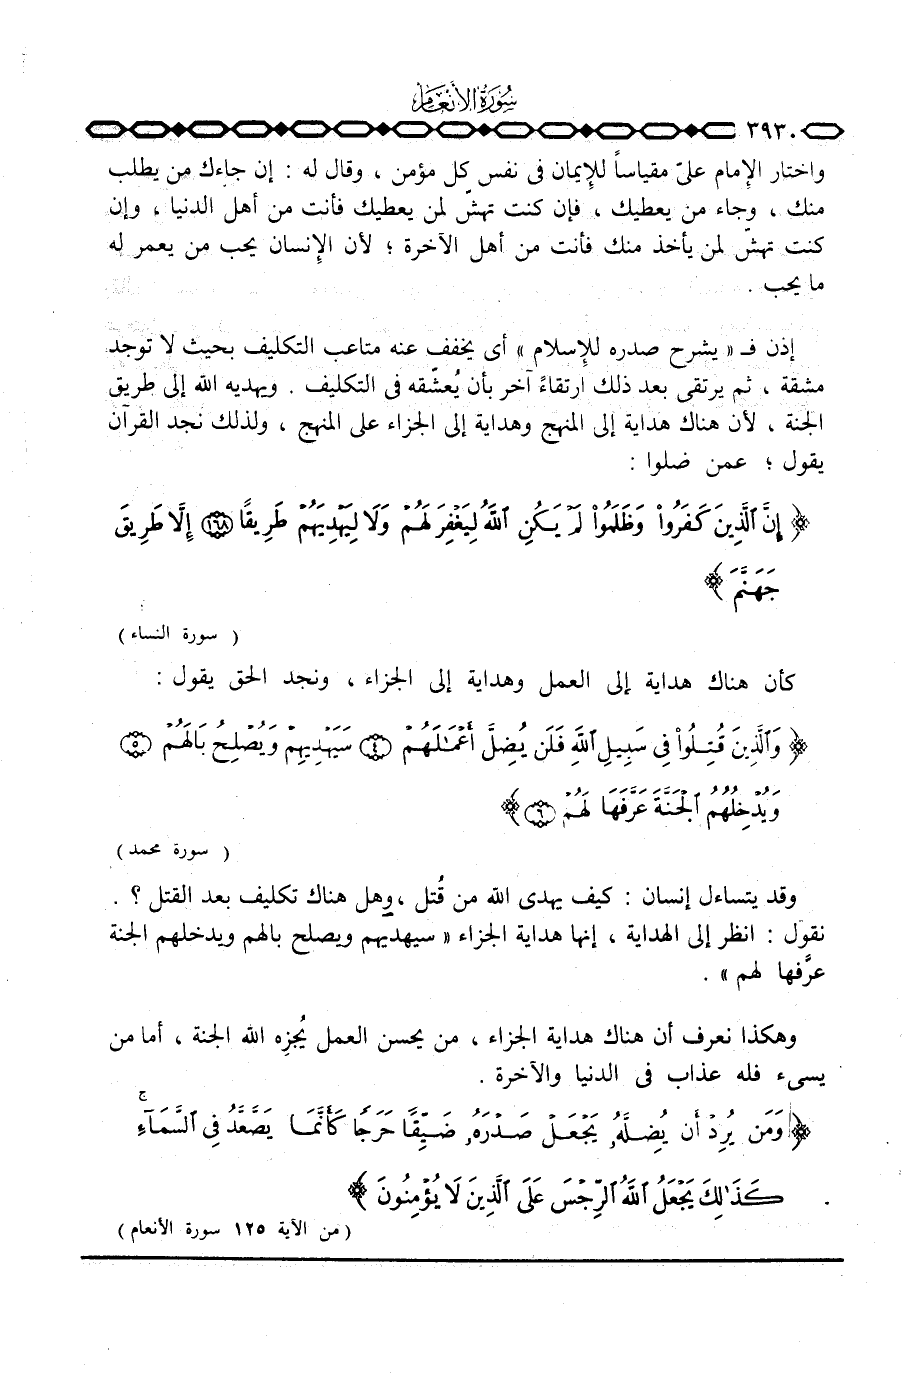 سُورَةُ الأَنْعَام
٣٩٣٠
واختار الإمام علىّ مقياساً للإيمان فى نفس كل مؤمن ، وقال له : إن جاءك من يطلب
منك ، وجاء من يعطيك ، فإن كنت تهشّ لمن يعطيك فأنت من أهل الدنيا ، وإن
كنت تهشّ لمن يأخذ منك فأنت من أهل الآخرة ؛ لأن الإنسان يحب من يعمر له
ما يحب .
إذن فـ « يشرح صدره للإسلام » أى يخفف عنه متاعب التكليف بحيث لا توجد
مشقة ، ثم يرتقى بعد ذلك ارتقاءً آخر بأن يُعشّقه فى التكليف . ويهديه الله إلى طريق
الجنة ، لأن هناك هداية إلى المنهج وهداية إلى الجزاء على المنهج ، ولذلك نجد القرآن
يقول ؛ عمن ضلوا :
﴿ إِنَّ ٱلَّذِينَ كَفَرُوا۟ وَظَلَمُوا۟ لَمْ يَكُنِ ٱللَّهُ لِيَغْفِرَ لَهُمْ وَلَا لِيَهْدِيَهُمْ طَرِيقًا ١٦٨ إِلَّا طَرِيقَ
جَهَنَّمَ ﴾
( سورة النساء )
كأن هناك هداية إلى العمل وهداية إلى الجزاء ، ونجد الحق يقول :
﴿ وَٱلَّذِينَ قُتِلُوا۟ فِى سَبِيلِ ٱللَّهِ فَلَن يُضِلَّ أَعْمَٰلَهُمْ ٤ سَيَهْدِيهِمْ وَيُصْلِحُ بَالَهُمْ ٥
وَيُدْخِلُهُمُ ٱلْجَنَّةَ عَرَّفَهَا لَهُمْ ٦ ﴾
( سورة محمد )
وقد يتساءل إنسان : كيف يهدى الله من قُتل ، وهل هناك تكليف بعد القتل ؟ .
نقول : انظر إلى الهداية ، إنها هداية الجزاء « سيهديهم ويصلح بالهم ويدخلهم الجنة
عرَّفها لهم » .
وهكذا نعرف أن هناك هداية الجزاء ، من يحسن العمل يُجزِه الله الجنة ، أما من
يسىء فله عذاب فى الدنيا والآخرة .
﴿ وَمَن يُرِدْ أَن يُضِلَّهُۥ يَجْعَلْ صَدْرَهُۥ ضَيِّقًا حَرَجًا كَأَنَّمَا يَصَّعَّدُ فِى ٱلسَّمَآءِ ۚ
كَذَٰلِكَ يَجْعَلُ ٱللَّهُ ٱلرِّجْسَ عَلَى ٱلَّذِينَ لَا يُؤْمِنُونَ ﴾
( من الآية ١٢٥ سورة الأنعام )